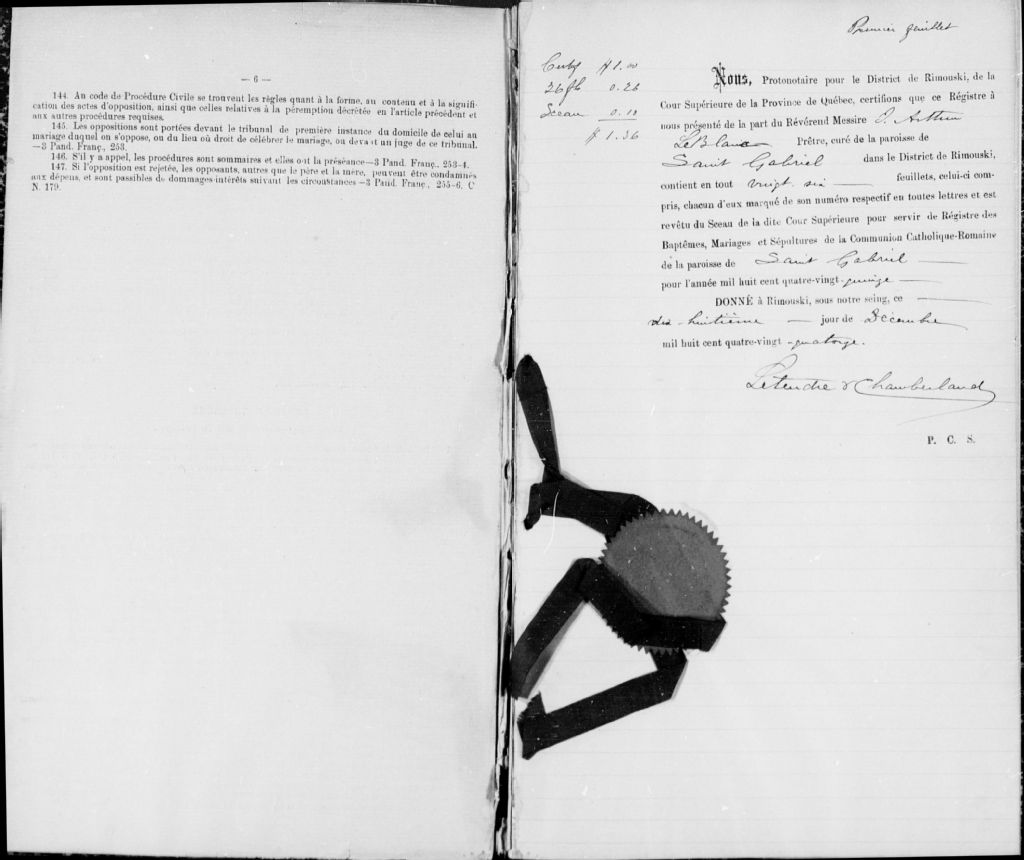 — 6 —
144. Au code de Procédure Civile se trouvent les règles quant à la forme, au contenu et à la signifi-
cation des actes d'opposition, ainsi que celles relatives à la péremption décrétée en l'article précédent et
aux autres procédures requises.
145. Les oppositions sont portées devant le tribunal de première instance du domicile de celui au
mariage duquel on s'oppose, ou du lieu où droit de célébrer le mariage, ou devant un juge de ce tribunal.
—3 Pand. Franç., 253.
146. S'il y a appel, les procédures sont sommaires et elles ont la préséance—3 Pand. Franç., 253-4.
147. Si l'opposition est rejetée, les opposants, autres que le père et la mère, peuvent être condamnés
aux dépens, et sont passibles de dommages-intérêts suivant les circonstances—3 Pand. Franç., 255-6. C
N. 179.
Premier feuillet
Certf $1.00
26 fls 0.26
Sceau 0.10
$1.36
Nous, Protonotaire pour le District de Rimouski, de la
Cour Supérieure de la Province de Québec, certifions que ce Régistre à
nous présenté de la part du Révérend Messire O. Arthur
LeBlanc Prêtre, curé de la paroisse de
Saint Gabriel dans le District de Rimouski,
contient en tout vingt six — feuillets, celui-ci com-
pris, chacun d'eux marqué de son numéro respectif en toutes lettres et est
revêtu du Sceau de la dite Cour Supérieure pour servir de Régistre des
Baptêmes, Mariages et Sépultures de la Communion Catholique-Romaine
de la paroisse de Saint Gabriel —
pour l'année mil huit cent quatre-vingt-quinze —
DONNÉ à Rimouski, sous notre seing, ce —
dix-huitième — jour de Décembre
mil huit cent quatre-vingt-quatorze.
Letendre & Chamberland
P. C. S.